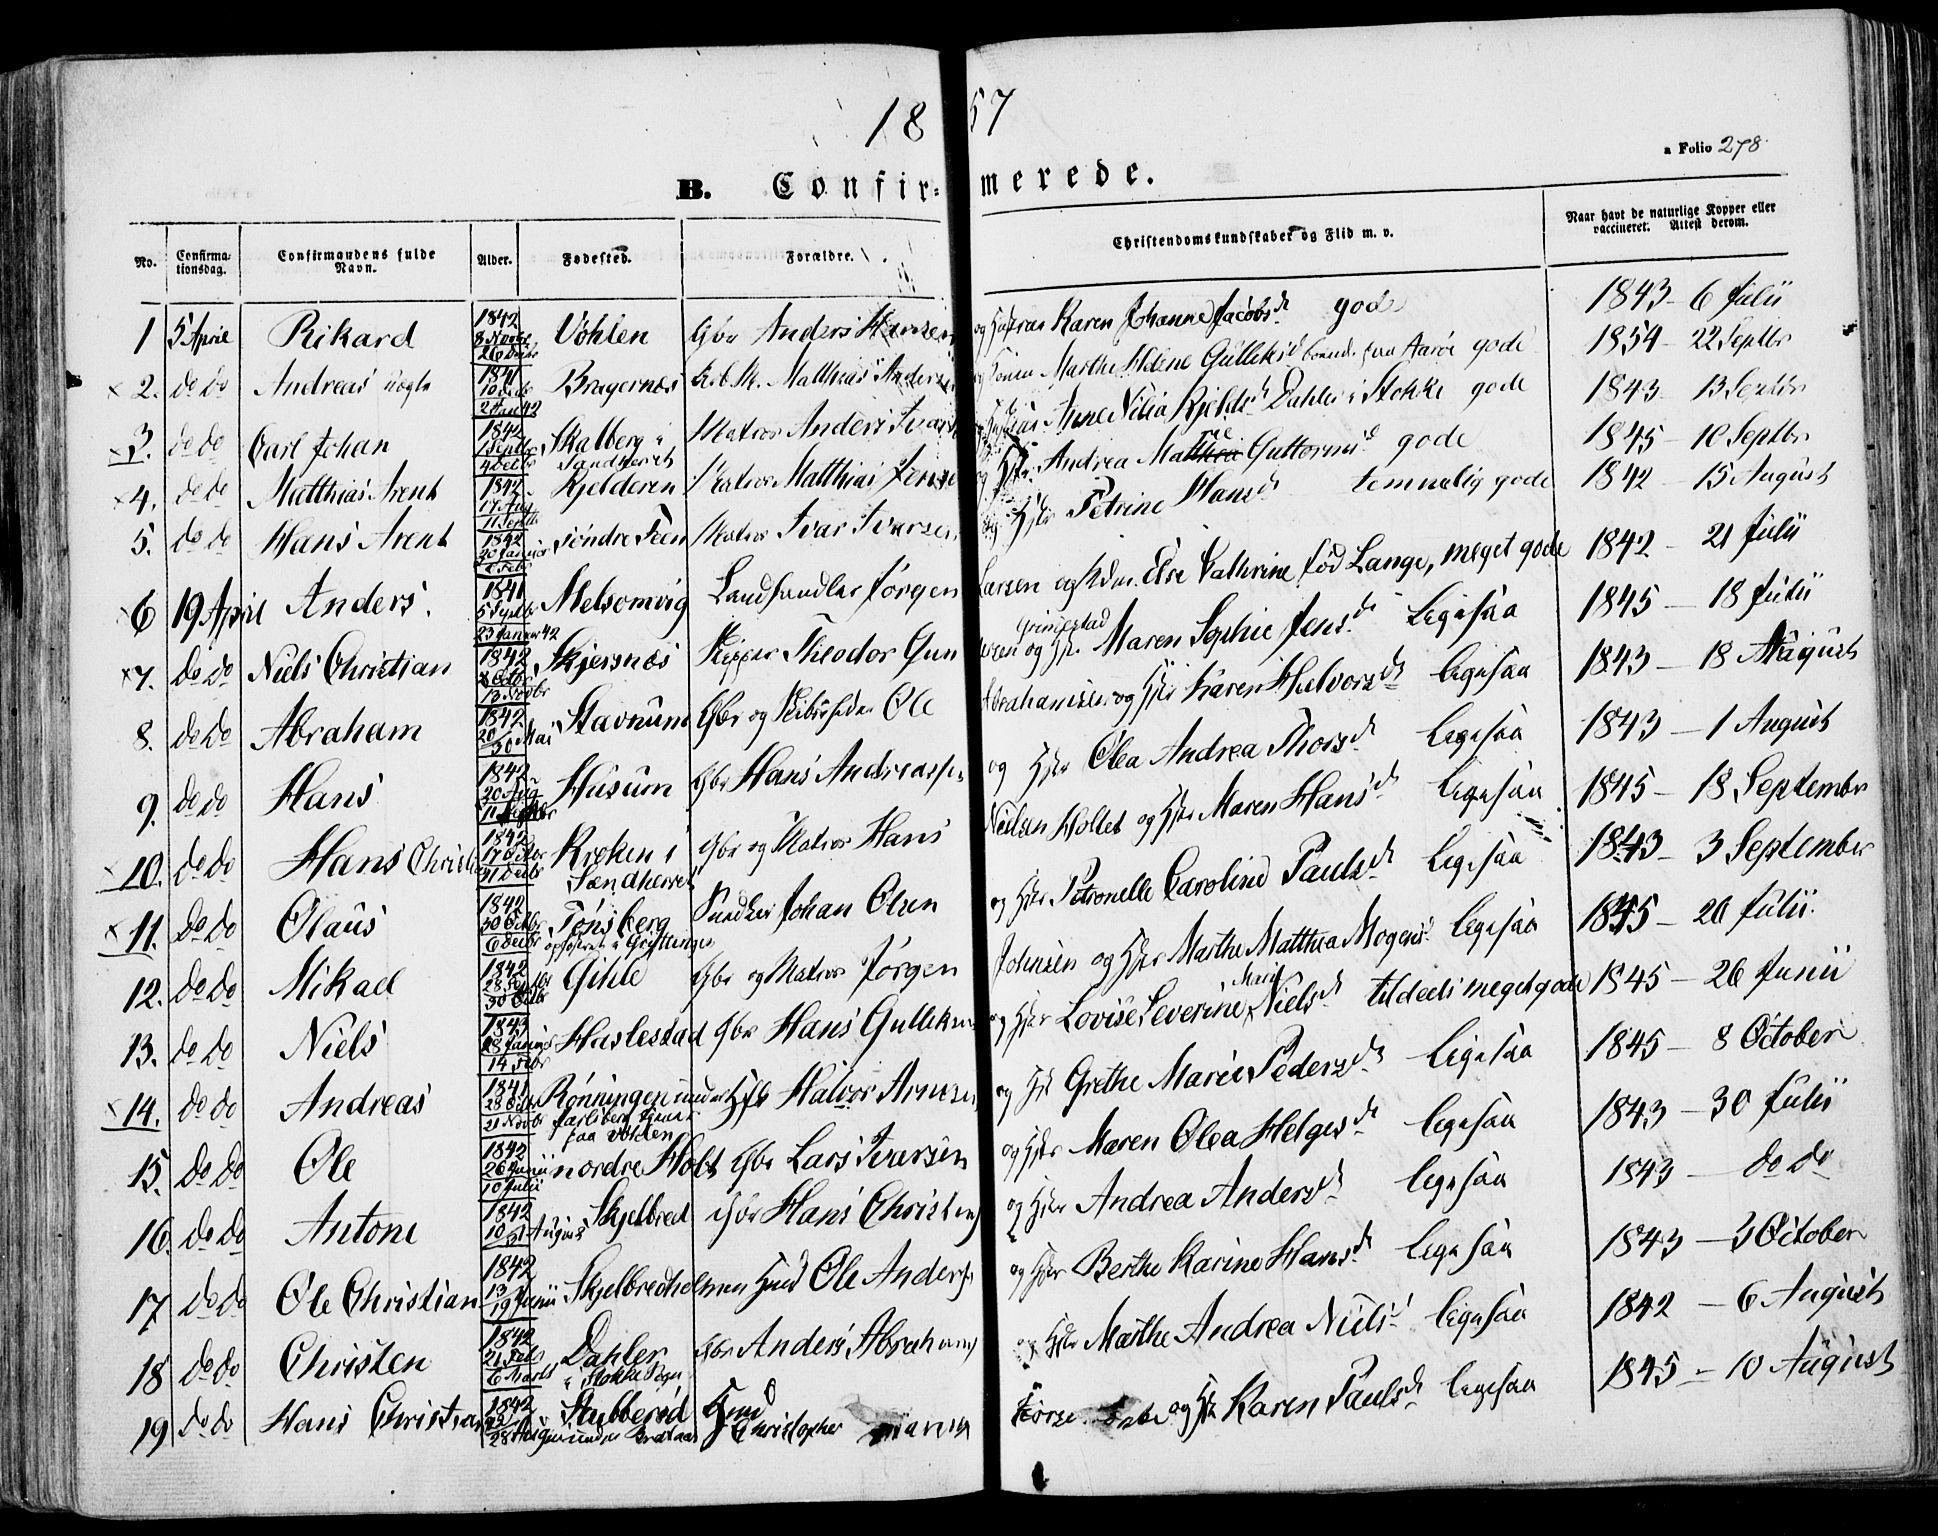 1857
a Folio 278.
B. Confirmerede.
No. Confirmationsdag. Confirmandens fulde Navn. Alder. Fødested. Forældre. Christendomskundskaber og Flid m. v. Naar havt de naturlige Kopper eller vaccineret. Attest derom.
1 5 April Rikard 1842 8 Novbr Vøhlen Gbr Anders Hansen og Karen Johanne Jacobsd. gode 1843 - 6 Julii
2. do do Andreas 1841 Bragernæs Matthias Anders Marthe Helene Gulliks gode 1854 - 22 Septbr
3. do do Carl Johan 1842 1 Septbr Skalberg i Sandherred Matros Anders Ivars Anne Nilia Kjeldsd. Dahler i Stokke gode 1843 13 Septbr
4. do do Matthias Arent 1842 17 Aug 11 Septbr Kjelderen Matros Matthias Jense og Hstr Andrea Guttormsd. gode 1845 - 10 Septbr
5. do do Hans Arent 1842 20 Januar Søndre Feen Matros Ivar Ivarsen og Hstr Petrine Hansd. temmelig gode 1842 - 15 August
6 19 April Anders. 1841 5 Septbr 23 Januar 42 Melsomvig Landhandler Jørgen Larsen og Else Cathrine fød Lange, meget gode 1842 - 21 Julii
7. do do Niels Christian 1842 2 Octbr 13 Novbr Skjersnæs Skipper Theodor Gun og Hstr Maren Sophie Jensd. Grimestad ligesaa 1845 - 18 Julii
8. do do Abraham 1842 20 30 Mai Stavnum Gbr og Ole Abrahamsen og Hstr Karen Halvorsd. ligesaa 1843 - 18 August
9. do do Hans 1842 20 Aug Husum Gbr Hans Andreassen og Hstr Olea Andrea Thorsd. ligesaa 1843 - 1 August
10. do do Hans Christi 1842 17 Octbr Kroken i Sandherred Gbr og Matros Hans Nielsen Holtet og Hstr Maren Hansd. ligesaa 1845 - 18 Septembr
11. do do Olaus 1842 30 Octbr 6 Decbr Tønsberg Snedker Johan Olsen og Hstr Petronelle Caroline Paulsd. ligesaa 1843 - 3 September
12. do do Mikael 1842 28 Septbr 30 Octbr Gihle Gbr og Matros Jørgen Johnsen og Hstr Marthe Matthea Mogens. ligesaa 1845 - 20 Julii.
13. do do Niels 1843 28 Januar 14 Febr Haslestad Gbr Hans Gulliksen og Hstr Lovise Severine Nielsd. tildeels meget gode 1845 - 26 Junii
14. do do Andreas 1841 28 Octbr 21 Novbr Rønningen under Jarlsberg Halvor Arnesen og Hstr Grethe Marie Pedersd. ligesaa 1845 - 8 October
15. do do Ole 1842 26 Junii 10 Julii nordre Holt Gbr Lars Ivarsen og Hstr Maren Olea Helgesd. ligesaa 1843 - 30 Julii
16. do do Antone 1842 10 August Skjelbred Gbr Hans Christens og Hstr Andrea Andersd. ligesaa 1843 - do do
17 do do Ole Christian 1842 13 19 Junii Skjelbredholmen Hmd Ole Anders og Hstr Berthe Karine Hansd. ligesaa 1843 - 3 October
18 do do Christen 1842 21 Feb 6 Marts Dahler i Stokke Sogn Gbr Anders Abrahams og Hstr Marthe Andrea Niels. ligesaa 1842 - 6 August
19 do do Hans Christian 1842 28 Aug Stubberød under Hmd Christopher og Hstr Karen Paulsd. ligesaa 1845 - 10 August